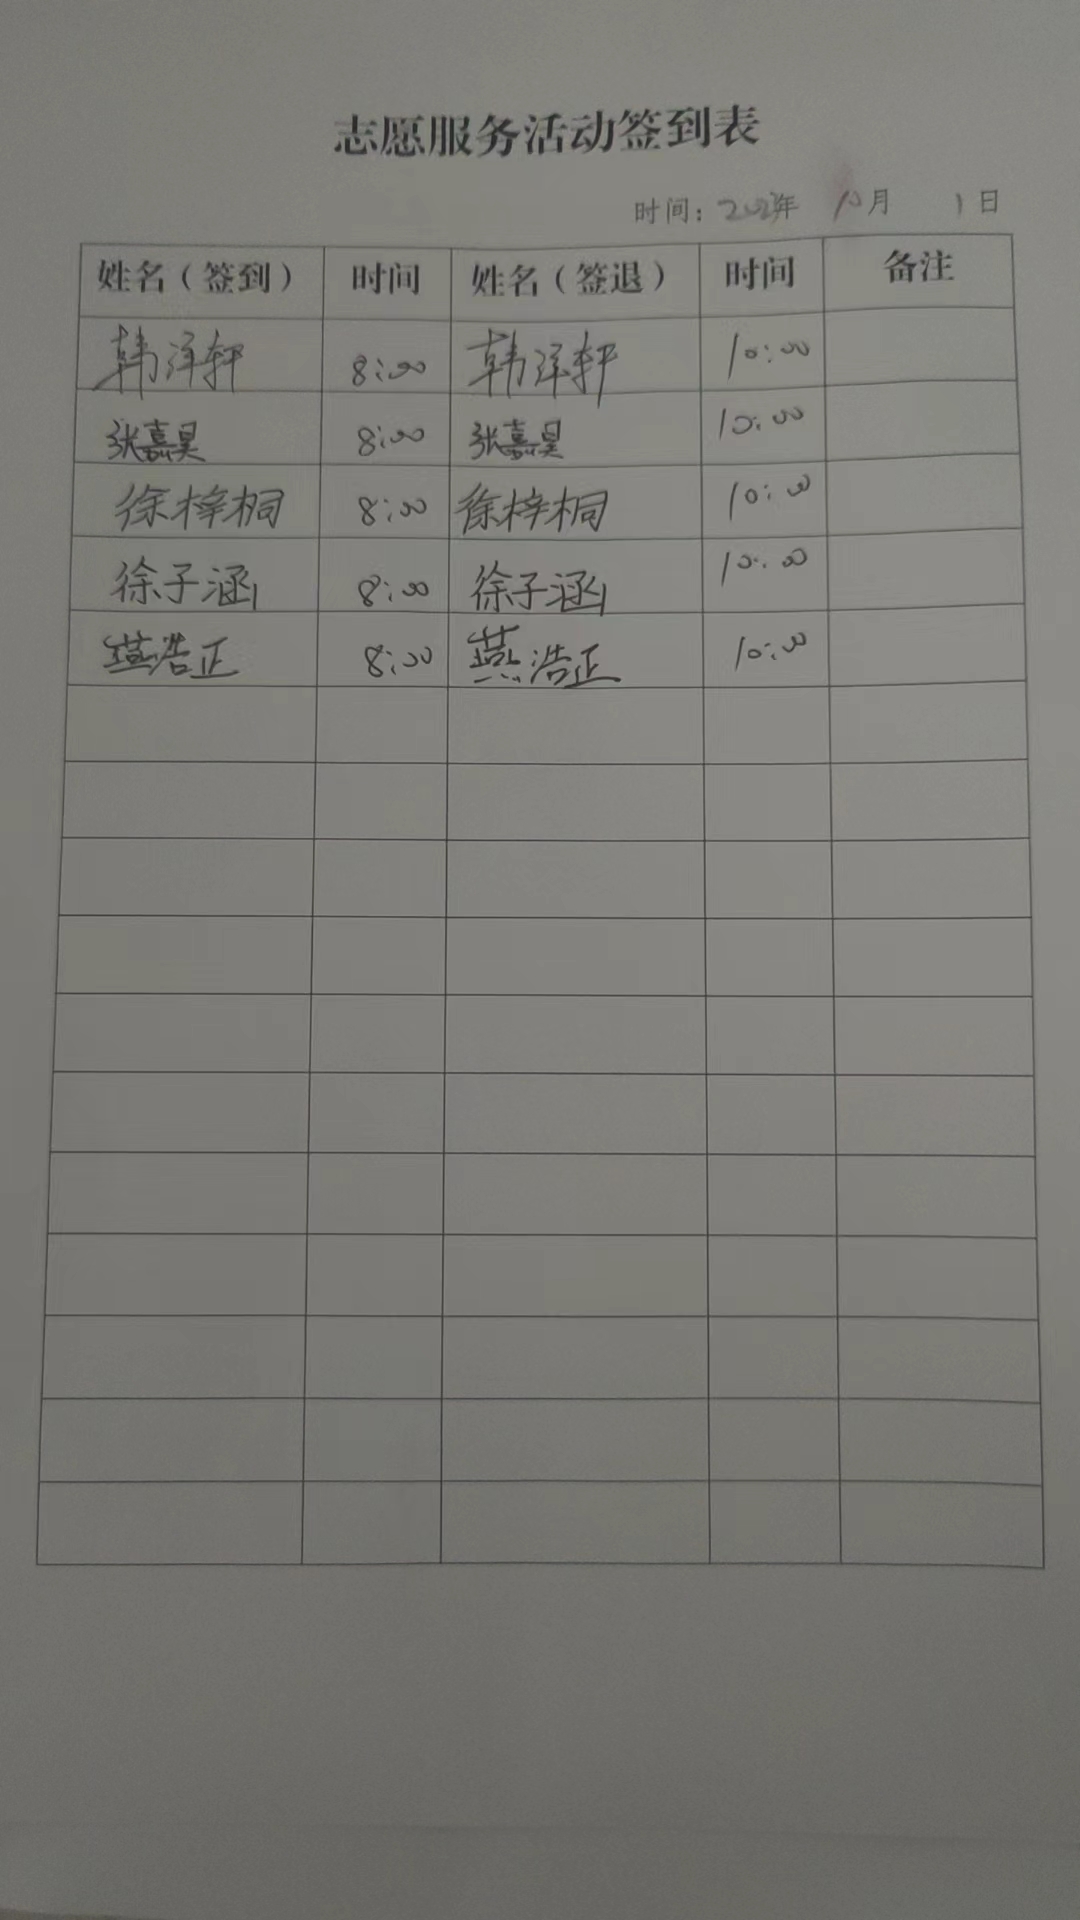 志愿服务活动签到表
时间： 年 10月 1日
姓名（签到） 时间 姓名（签退） 时间 备注
韩洋轩 8:00 韩洋轩 10:00
张嘉昊 8:00 张嘉昊 10:00
徐梓桐 8:00 徐梓桐 10:00
徐子涵 8:00 徐子涵 10:00
燕浩正 8:00 燕浩正 10:00